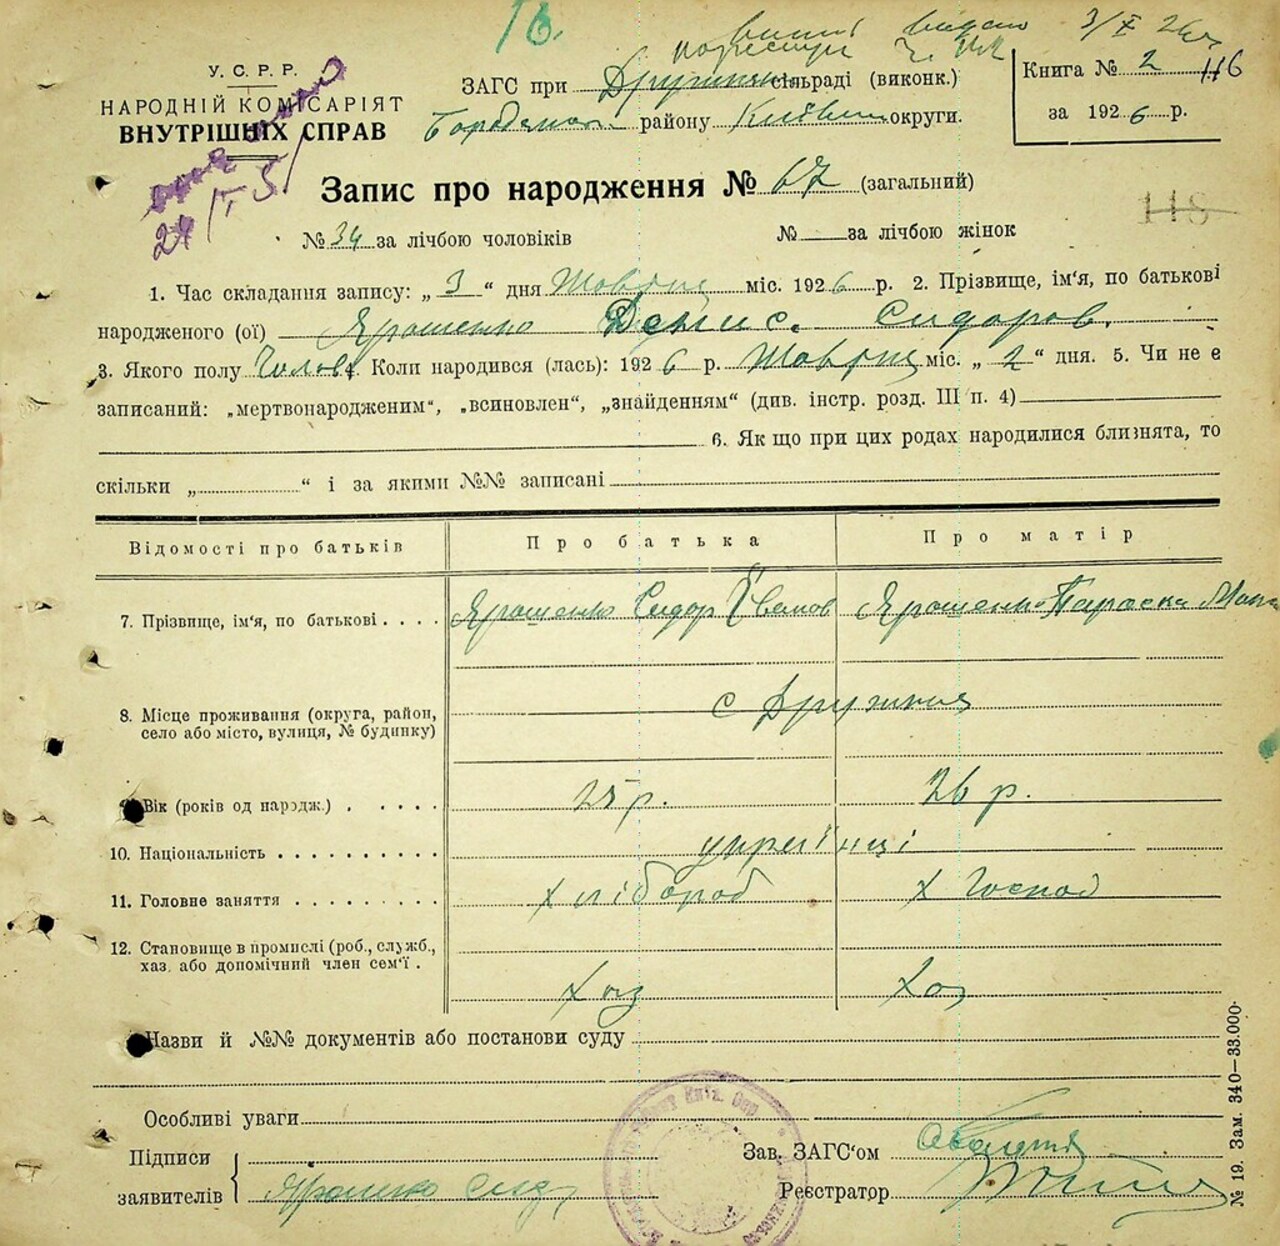 16.
3/X 26
У. С. Р. Р.
НАРОДНІЙ КОМІСАРІЯТ
ВНУТРІШНІХ СПРАВ
ЗАГС при Дружнян сільраді (виконк.)
Бородянс району Київськ округи.
Книга № 2 116
за 1926 р.
Запис про народження № 67 (загальний)
118
№ 34 за лічбою чоловіків № за лічбою жінок
1. Час складання запису: „ 3 “ дня Жовтня міс. 1926 р. 2. Прізвище, ім'я, по батькові
народженого (ої) Ярошенко Денис. Сидоров.
3. Якого полу Чолов 4. Коли народився (лась): 1926 р. Жовтня міс. „ 2 “ дня. 5. Чи не є
записаний: „мертвонародженим“, „всиновлен“, „знайденням“ (див. інстр. розд. III п. 4)
6. Як що при цих родах народилися близнята, то
скільки „ “ і за якими №№ записані
Відомості про батьків Про батька Про матір
7. Прізвище, ім'я, по батькові . . . . Ярошенко Сидор Іванов Ярошенко Параска
8. Місце проживання (округа, район,
село або місто, вулиця, № будинку) с Дружня
9. Вік (років од народж.) . . . . . 25 р. 26 р.
10. Національність . . . . . . . . . . українці
11. Головне заняття . . . . . . . . . хлібороб х господ
12. Становище в промислі (роб., служб.,
хаз. або допомічний член сем'ї . Хаз Хаз
Назви й №№ документів або постанови суду
Особливі уваги
Підписи
заявителів Ярошенко Сид
Зав. ЗАГС'ом
Реєстратор
№ 19. Зам. 340—33.000.